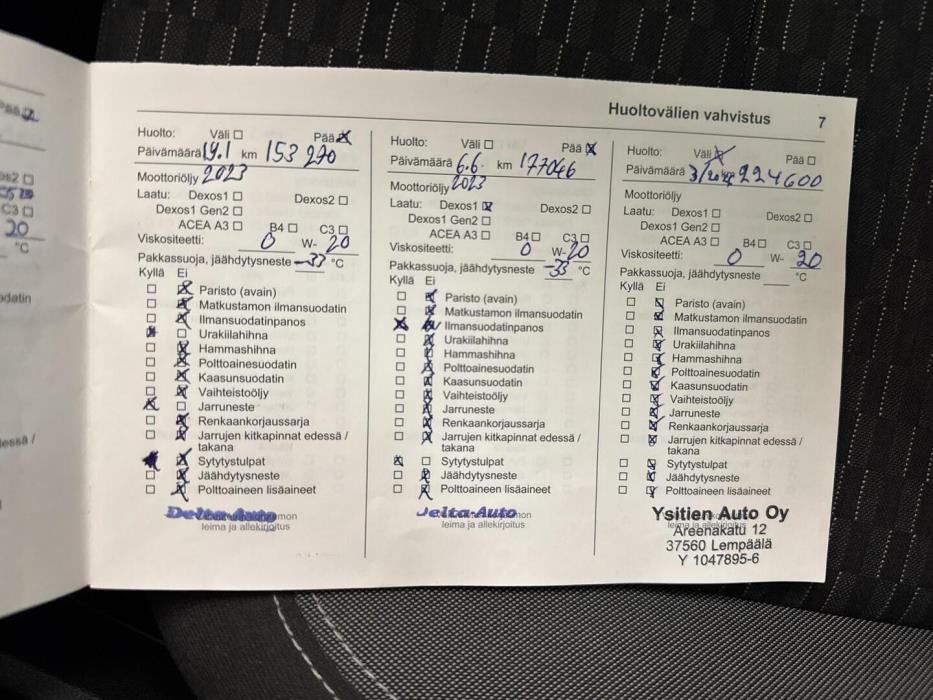 Huoltovälien vahvistus 7
Huolto: Väli ☐ Pää ☒
Päivämäärä 19.1 km 153 290
2023
Moottoriöljy
Laatu: Dexos1 ☐ Dexos2 ☐
Dexos1 Gen2 ☐
ACEA A3 ☐ B4 ☐ C3 ☐
Viskositeetti: 0 W- 20
Pakkassuoja, jäähdytysneste -33 °C
Kyllä Ei
☐ ☒ Paristo (avain)
☐ ☒ Matkustamon ilmansuodatin
☐ ☒ Ilmansuodatinpanos
☒ ☐ Urakiilahihna
☐ ☒ Hammashihna
☐ ☒ Polttoainesuodatin
☐ ☒ Kaasunsuodatin
☐ ☒ Vaihteistoöljy
☒ ☐ Jarruneste
☐ ☒ Renkaankorjaussarja
☐ ☒ Jarrujen kitkapinnat edessä /
takana
☒ Sytytystulpat
☐ ☒ Jäähdytysneste
☐ ☒ Polttoaineen lisäaineet
Delta-Auto
leima ja allekirjoitus
Huolto: Väli ☐ Pää ☒
Päivämäärä 6.6. km 177046
2023
Moottoriöljy
Laatu: Dexos1 ☒ Dexos2 ☐
Dexos1 Gen2 ☐
ACEA A3 ☐ B4 ☐ C3 ☐
Viskositeetti: 0 W- 20
Pakkassuoja, jäähdytysneste -33 °C
Kyllä Ei
☐ ☒ Paristo (avain)
☐ ☒ Matkustamon ilmansuodatin
☒ Ilmansuodatinpanos
☐ ☒ Urakiilahihna
☐ ☒ Hammashihna
☐ ☒ Polttoainesuodatin
☐ ☒ Kaasunsuodatin
☐ ☒ Vaihteistoöljy
☐ ☒ Jarruneste
☐ ☒ Renkaankorjaussarja
☐ ☒ Jarrujen kitkapinnat edessä /
takana
☒ ☐ Sytytystulpat
☐ ☒ Jäähdytysneste
☐ ☒ Polttoaineen lisäaineet
Delta-Auto
leima ja allekirjoitus
Huolto: Väli ☒ Pää ☐
Päivämäärä km 224600
Moottoriöljy
Laatu: Dexos1 ☐ Dexos2 ☐
Dexos1 Gen2 ☐
ACEA A3 ☐ B4 ☐ C3 ☐
Viskositeetti: 0 W- 20
Pakkassuoja, jäähdytysneste °C
Kyllä Ei
☐ ☒ Paristo (avain)
☐ ☒ Matkustamon ilmansuodatin
☐ ☒ Ilmansuodatinpanos
☐ ☒ Urakiilahihna
☐ ☒ Hammashihna
☐ ☒ Polttoainesuodatin
☐ ☒ Kaasunsuodatin
☐ ☒ Vaihteistoöljy
☐ ☒ Jarruneste
☐ ☒ Renkaankorjaussarja
☐ ☒ Jarrujen kitkapinnat edessä /
takana
☐ ☒ Sytytystulpat
☐ ☒ Jäähdytysneste
☐ ☒ Polttoaineen lisäaineet
Ysitien Auto Oy
leima ja allekirjoitus
Areenakatu 12
37560 Lempäälä
Y 1047895-6